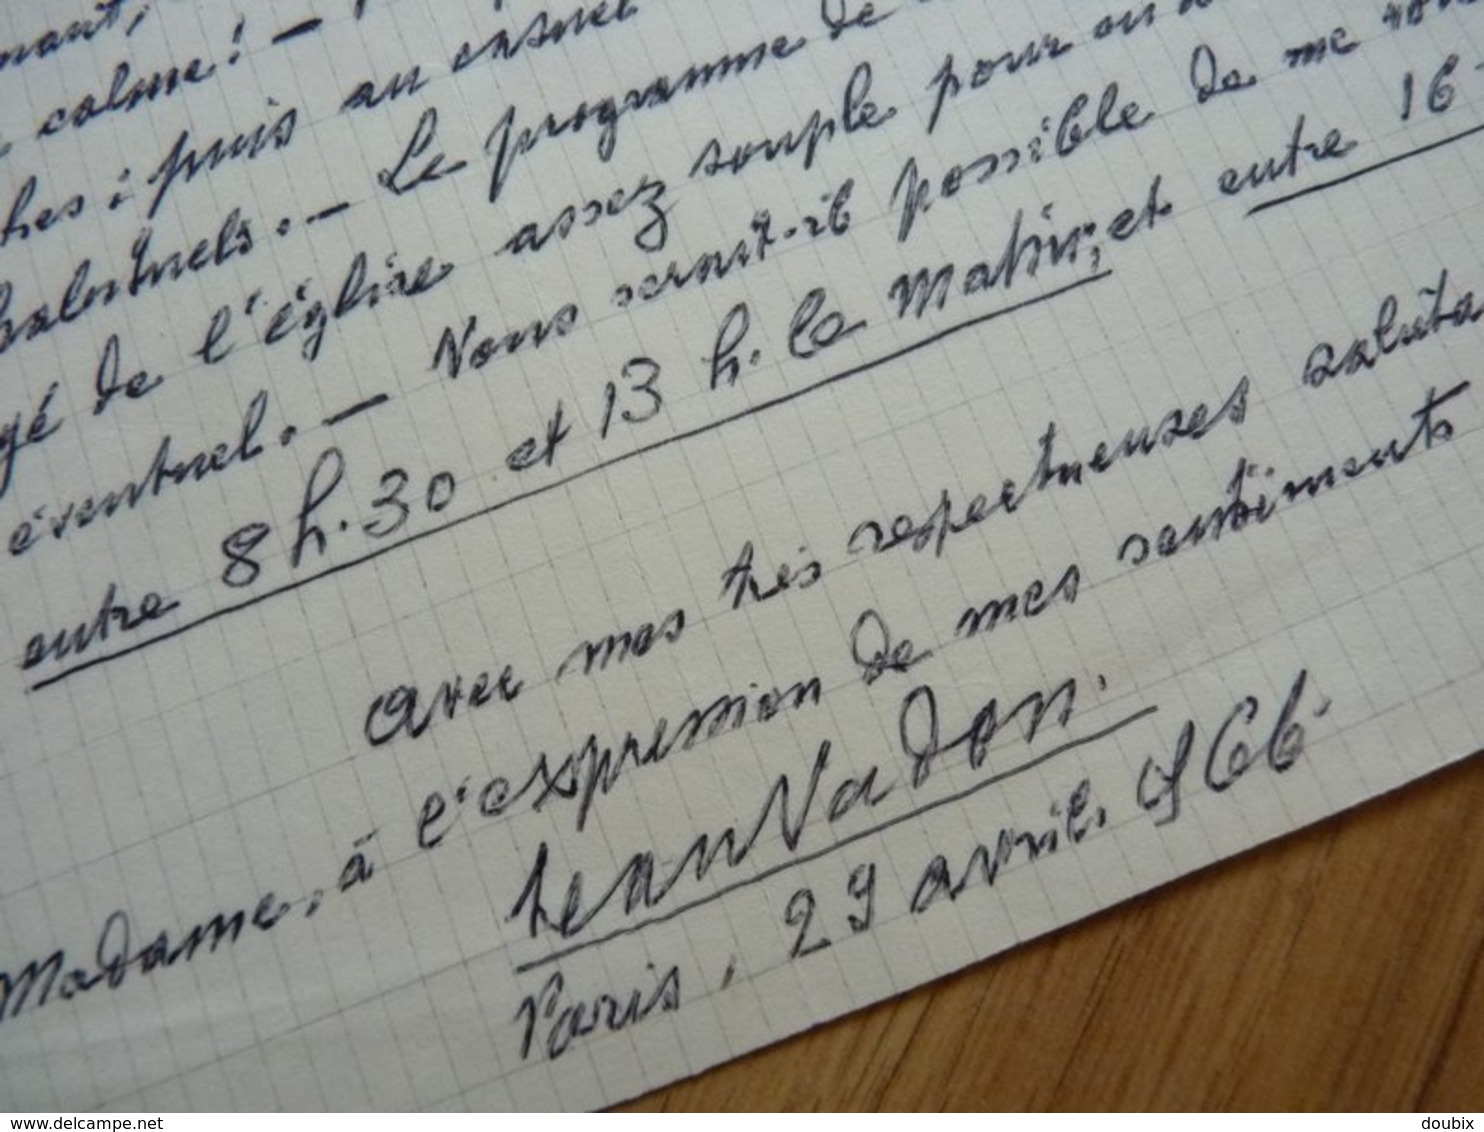 calme! —
puis au casuel
habituels. — Le programme de
gé de l'église assez souple pour
éventuel. — Vous serait-il possible de me
entre 8 h. 30 et 13 h. le matin, et entre 16
avec mes très respectueuses saluta
Madame, à l'expression de mes sentiments
Jean Vadon.
Paris, 29 avril 1966.
www.delcampe.net
doubix